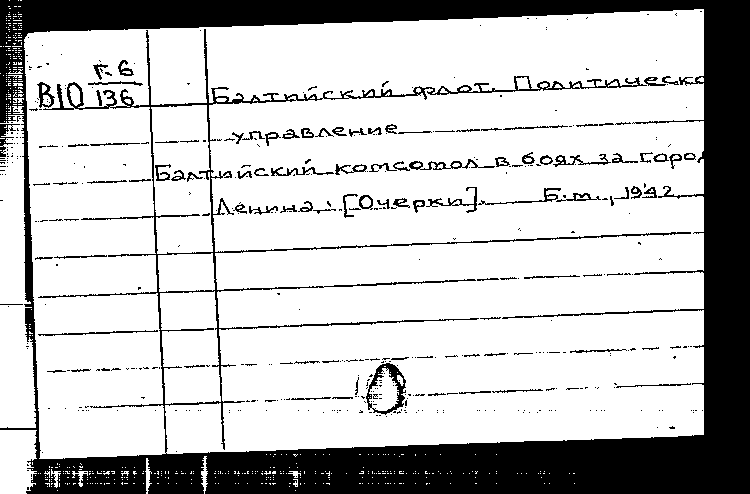 г. 6
В10 136
Балтийский флот. Политическо
управление
Балтийский комсомол в боях за горо
Ленина. : [Очерки]. Б.м., 1942.